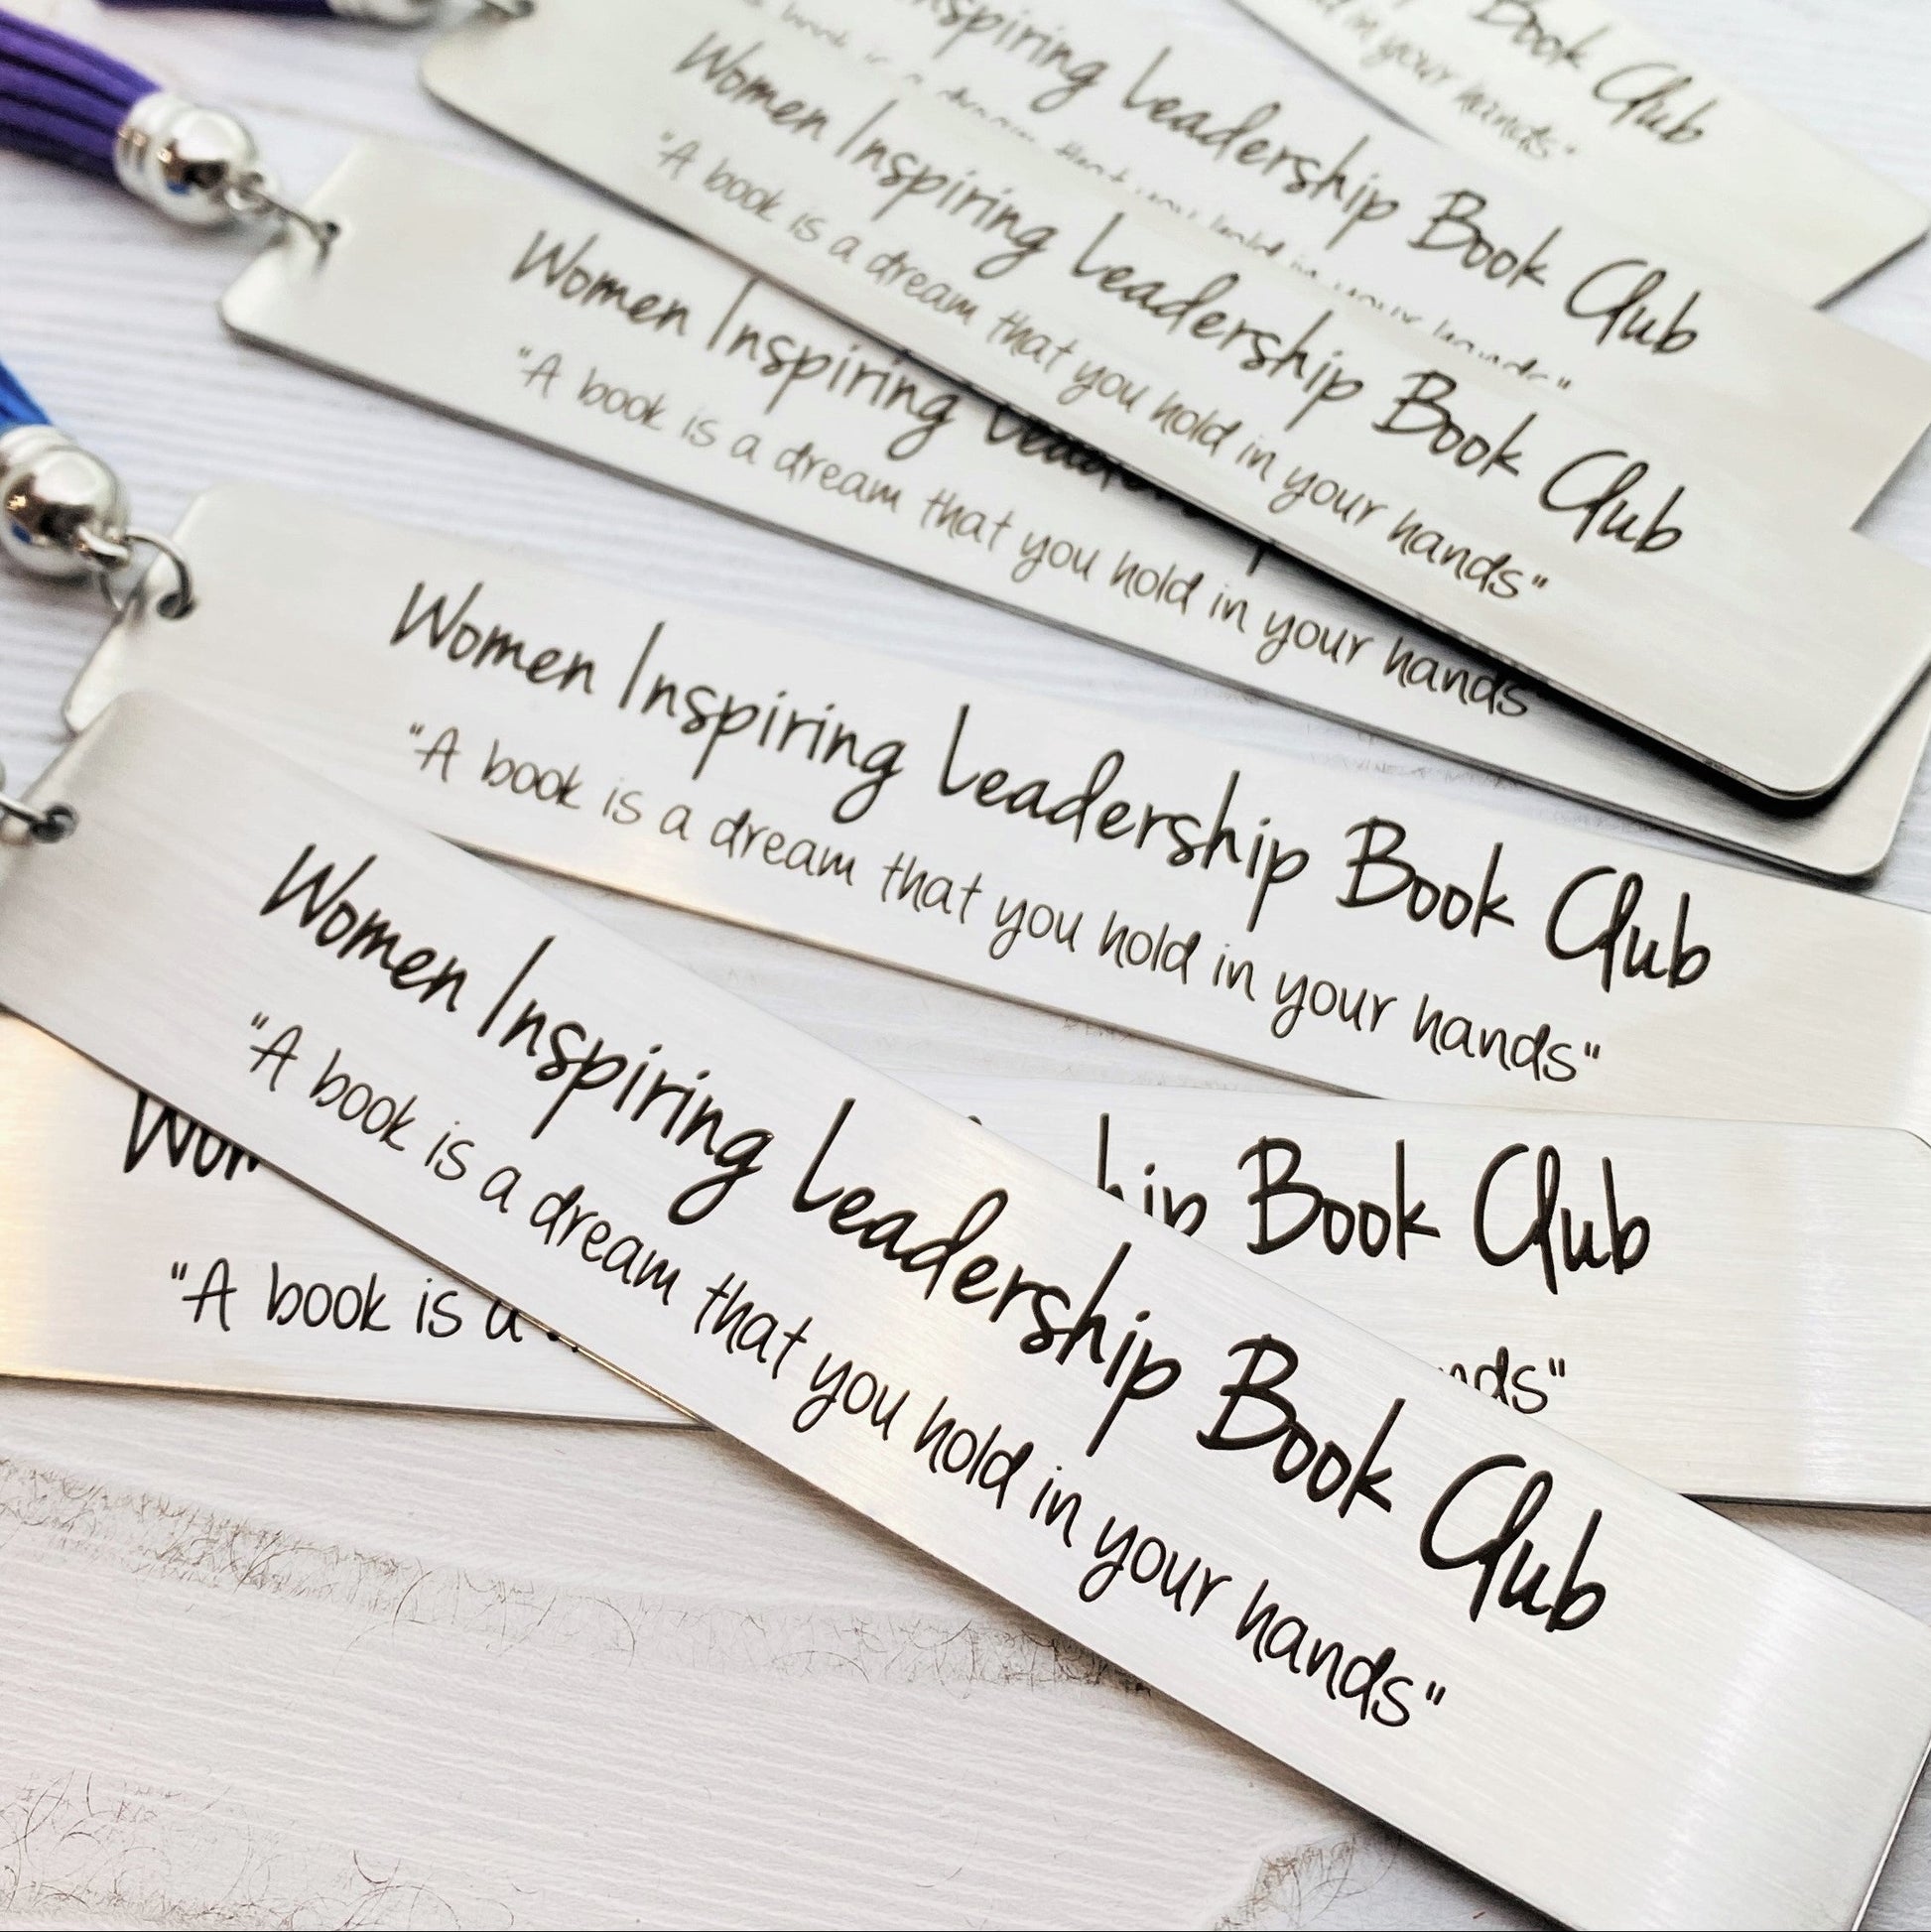 Book Club
in your hands"
Inspiring Leadership Book Club
Women Inspiring Leadership Book Club
"A book is a dream that you hold in your hands"
Women Inspiring
"A book is a dream that you hold in your hands
Women Inspiring Leadership Book Club
"A book is a dream that you hold in your hands"
Women Inspiring Leadership Book Club
"A book is a dream that you hold in your hands"
Book Club
"A book is a